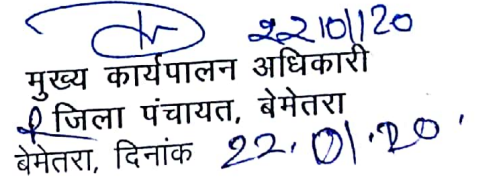 22/01/20
मुख्य कार्यपालन अधिकारी
जिला पंचायत, बेमेतरा
बेमेतरा, दिनांक 22.01.20.